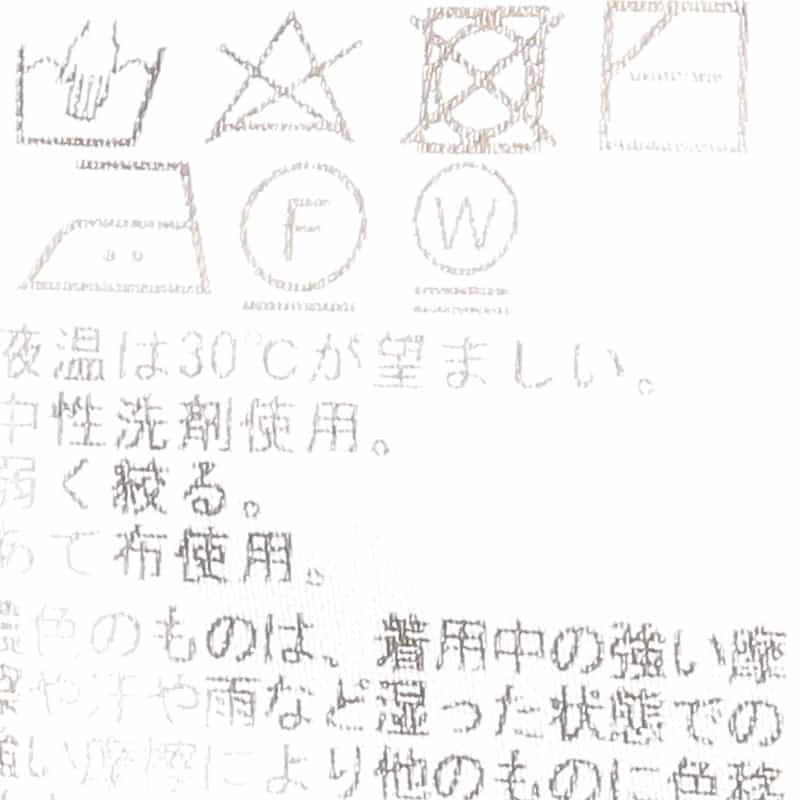 F W
液温は30℃が望ましい。
中性洗剤使用。
弱く絞る。
あて布使用。
濃色のものは、着用中の強い摩
や汗や雨など湿った状態での
強い摩擦により他のものに色移